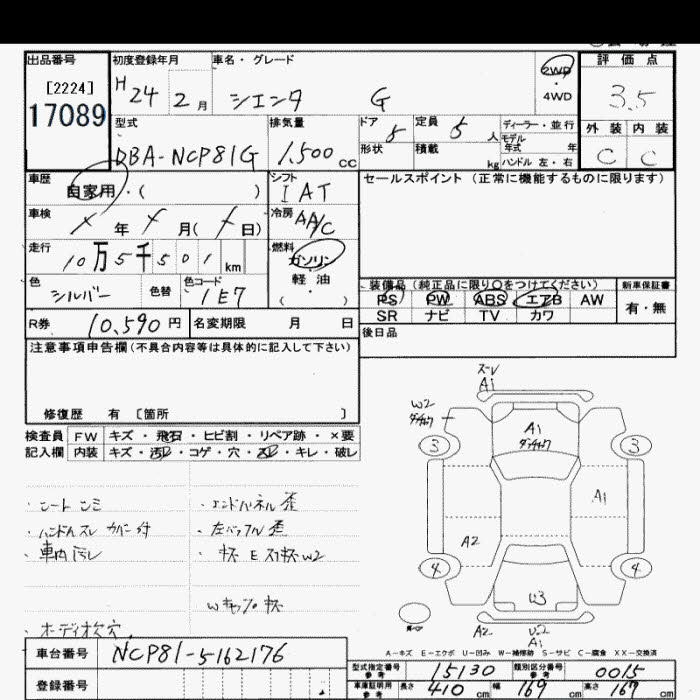 出品番号
[2224]
17089
初度登録年月
H 24 2 月
車名・グレード
シエンタ G
2WD
・
4WD
評価点
3.5
外装 内装
C C
型式
DBA-NCP81G
排気量
1,500 cc
ドア 5
定員 5 人
形状
積載 kg
ディーラー・並行
モデル
年式 年
ハンドル 左・右
車歴
自家用・( )
シフト
IAT
セールスポイント(正常に機能するものに限ります)
車検
年 月( 日)
冷房
AA/C
走行
10万5千501 km
燃料
ガソリン
・
軽油
・
( )
色
シルバー
色替
色コード
1E7
装備品(純正品に限り○をつけてください)
PS PW ABS エアB AW
SR ナビ TV カワ
新車保証書
有・無
R券
10,590 円
名変期限 月 日
後日品
注意事項申告欄(不具合内容等は具体的に記入して下さい)
修復歴 有 〔箇所 〕
検査員
記入欄
FW キズ・飛石・ヒビ割・リペア跡・×要
内装 キズ・汚レ・コゲ・穴・スレ・キレ・破レ
・ハンドルスレ カバー付
・車内汚レ
・エンドパネル歪
A1
W2
A1
3
3
A1
A2
4
4
U3
A2
U2
A1
A-キズ E-エクボ U-凹み W-補修跡 S-サビ C-腐食 XX-交換済
車台番号
NCP81-5162176
登録番号
型式指定番号
参考
15130
類別区分番号
参考
0015
車庫証明用
参考
長さ 410 cm
幅 169 cm
高さ 167 cm